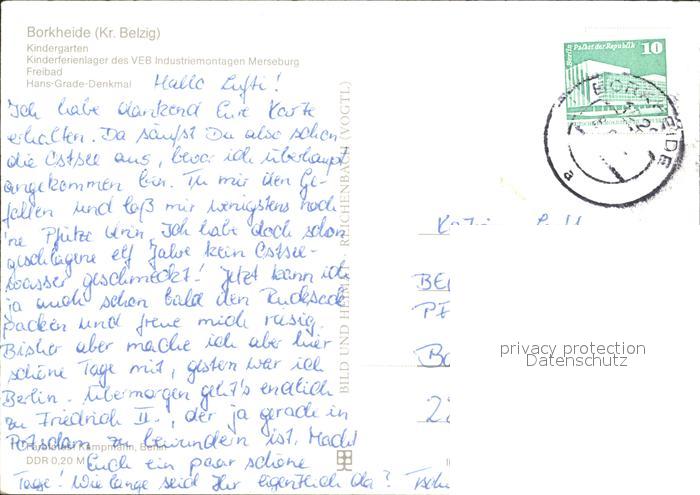 Borkheide (Kr. Belzig)
Kindergarten
Kinderferienlager des VEB Industriemontagen Merseburg
Freibad
Hans-Grade-Denkmal
Hallo Lufti!
Ich habe dankend Eure Karte
erhalten. Da säufst Du also schon
die Ostsee aus, bevor ich überhaupt
angekommen bin. Tu mir den Ge-
fallen und laß mir wenigstens noch
'ne Pfütze drin. Ich habe doch schon
geschlagene elf Jahre kein Ostsee-
wasser geschmeckt! Jetzt kann ich
ja auch schon bald den Rucksack
packen und freue mich riesig.
Bisher aber mache ich aber hier
schöne Tage mit, gestern war ich
Berlin. Übermorgen geht's endlich
zu Friedrich II., der ja gerade in
Potsdam zu bewundern ist. Macht
Euch ein paar schöne
Tage! Wie lange seid Ihr eigentlich da? Tschü
Kampmann, Berlin
DDR 0,20 M
BILD UND HEIMAT REICHENBACH (VOGTL)
Berlin Palast der Republik 10
BORKHEIDE
a
privacy protection
Datenschutz